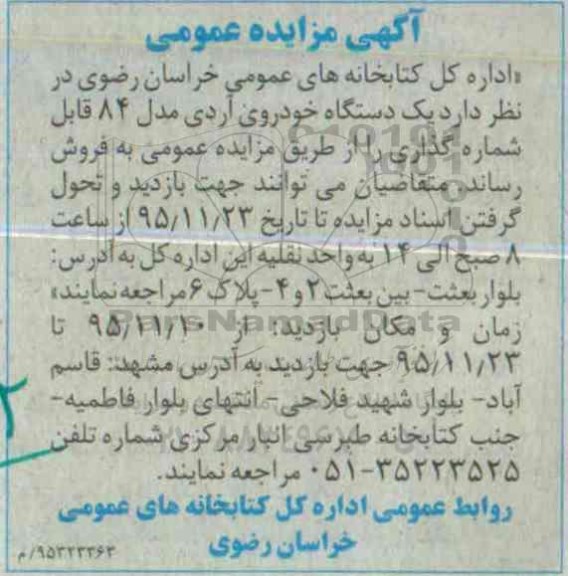 آگهی مزایده عمومی
«اداره کل کتابخانه های عمومی خراسان رضوی در
نظر دارد یک دستگاه خودروی آردی مدل ۸۴ قابل
شماره گذاری را از طریق مزایده عمومی به فروش
رساند. متقاضیان می توانند جهت بازدید و تحول
گرفتن اسناد مزایده تا تاریخ ۹۵/۱۱/۲۳ از ساعت
۸ صبح الی ۱۴ به واحد نقلیه این اداره کل به آدرس:
بلوار بعثت- بین بعثت ۲ و ۴- پلاک ۶ مراجعه نمایند»
زمان و مکان بازدید: از ۹۵/۱۱/۱۰ تا
۹۵/۱۱/۲۳ جهت بازدید به آدرس مشهد: قاسم
آباد- بلوار شهید فلاحی- انتهای بلوار فاطمیه-
جنب کتابخانه طبرسی انبار مرکزی شماره تلفن
۰۵۱-۳۵۲۲۳۵۲۵ مراجعه نمایند.
روابط عمومی اداره کل کتابخانه های عمومی
خراسان رضوی
۹۵۳۲۳۳۶۳/م
ParsNamadData